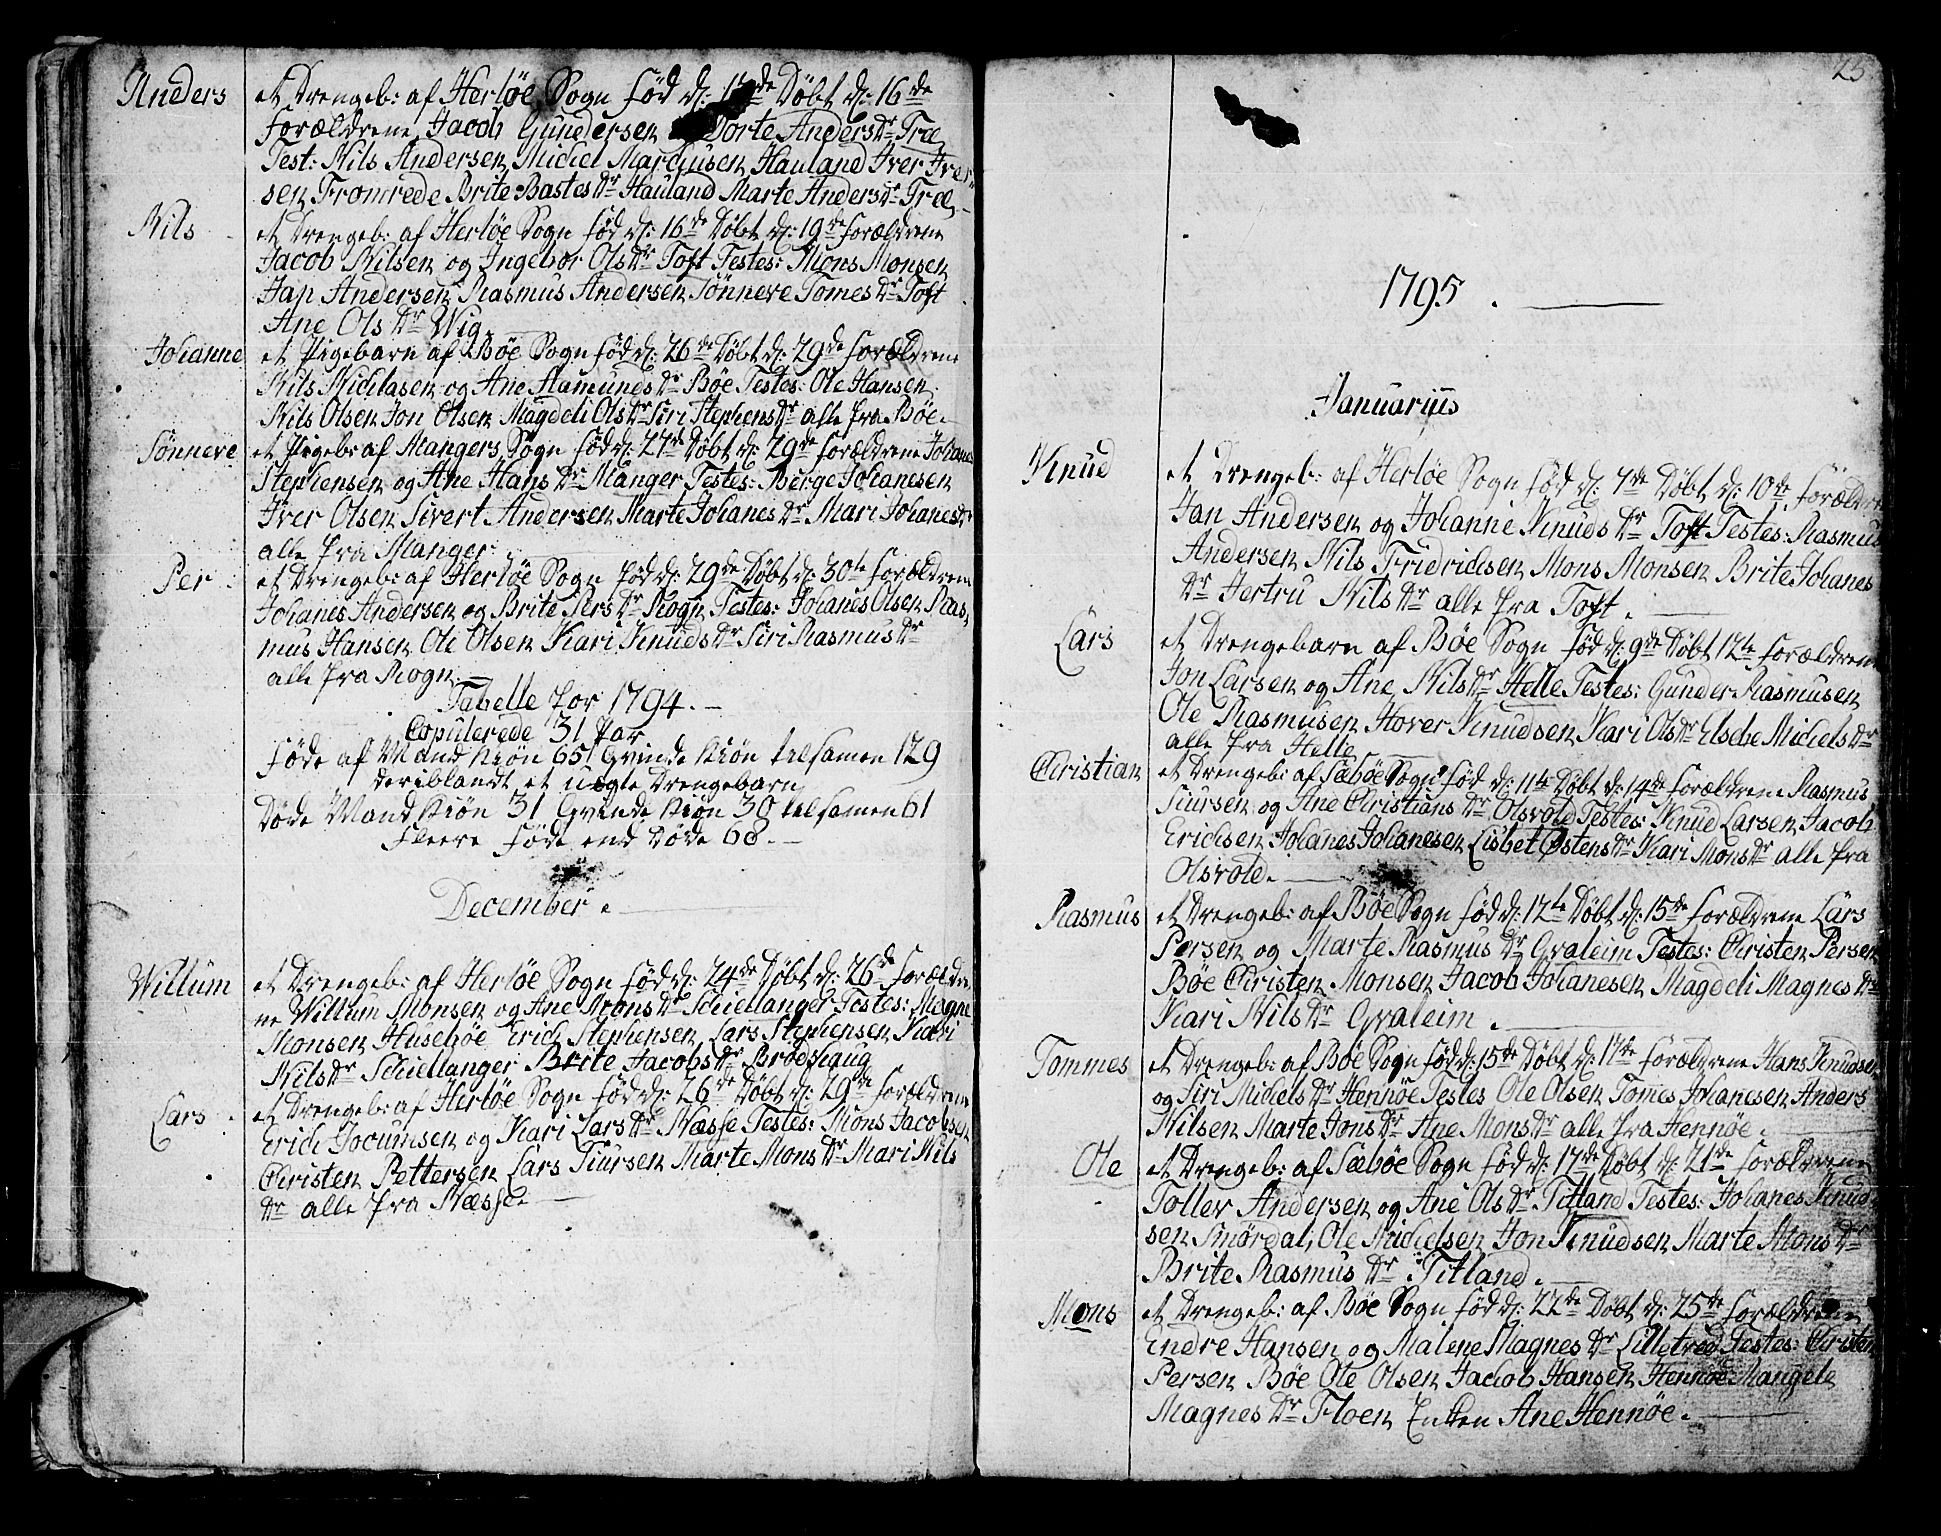 Anders et Drengeb: af Herlöe Sogn föd d: 1 de Döbt d: 16de
forældrene Jacob Gundersen Dorte Andersdr Træ
Test: Nils Andersen Michel Marchusen Hauland Iver Iver-
sen Fromrede Brite Bastesdr Hauland Marte Andersdr Træ
Nils et Drengeb: af Herlöe Sogn föd d: 16de Döbt d: 19de forældrene
Jacob Nilsen og Ingebor Olsdr Toft Testes: Mons Monsen
Jan Andersen Rasmus Andersen Sönneve Tomesdr Toft
Ane Olsdr Wig
Johanne et Pigebarn af Böe Sogn föd d: 26de Döbt d: 29de forældrene
Nils Nichlasen og Ane Aamundsdr Böe Testes: Ole Hansen
Nils Olsen Jon Olsen Magdeli Olsdr Siri Stephensdr alle fra Böe.
Sönneve et Pigeb: af Mangers Sogn föd d: 27de Döbt d: 29de forældrene Johane
Stephensen og Ane Hansdr Manger Testes: Børge Johanesen
Iver Olsen Sivert Andersen Marte Johanesdr Mari Johanesdr
alle fra Manger.
Per et Drengeb: af Herlöe Sogn föd d: 29de Döbt d: 30te forældrene
Johanes Andersen og Brite Persdr Rogn Testes: Johanes Olsen Ras-
mus Hansen Ole Olsen Kari Knudsdr Siri Rasmusdr
alle fra Rogn.
Tabelle for 1794.
Copulerede 31 Par
Föde af Mand Kiön 65 Qvinde Kiön tilsamen 129
deriblandt et uægte Drengebarn
Döde Mand Kiön 31 Qvinde Kiön 30 tilsamen 61
Fleere Föde end Döde 68.
December.
Willum et Drengeb: af Herlöe Sogn föd d: 24de Döbt d: 26de forældre-
ne Willum Monsen og Ane Monsdr Schiellanger Testes: Magne
Monsen Husebøe Erich Stephensen Lars Stephensen Kari
Nilsdr Schiellanger Brite Jacobsdr Brödshaug
Lars et Drengeb: af Herlöe Sogn föd d: 26de Döbt d: 29de forældrene
Erich Jocumsen og Kari Larsdr Næsse Testes: Mons Jacobsen
Christen Pettersen Lars Siursen Marte Monsdr Mari Nils
dr alle fra Næsse.
25
1795.
Januarius
Knud et Drengeb: af Herlöe Sogn föd d: 7de Döbt d: 10de forældrene
Jan Andersen og Johanne Knudsdr Toft Testes: Rasmus
Andersen Nils Friedrichsen Mons Monsen Brite Johanes
dr Jertru Nilsdr alle fra Toft.
Lars et Drengebarn af Böe Sogn föd d: 9de Döbt 12te forældrene
Jon Larsen og Ane Nilsdr Helle Testes: Gunder Rasmusen
Ole Rasmusen Hover Knudsen Kari Olsdr Elsebe Michelsdr
alle fra Helle
Christian et Drengeb: af Sæböe Sogn föd d: 11te Döbt d: 14de forældrene Rasmus
Siursen og Ane Christiansdr Olsvold Testes: Knud Larsen Jacob
Erichsen Johanes Johanesen Lisbet Østensdr Kari Monsdr alle fra
Olsvold.
Rasmus et Drengeb: af Böe Sogn föd d: 12te Döbt d: 15de forældrene Lars
Persen og Marte Rasmusdr Qvaleim Testes: Christen Persen
Böe Christen Monsen Jacob Johanesen Magdeli Magnesdr
Kari Nilsdr Qvaleim.
Tommes et Drengeb: af Böe Sogn föd d: 15de Döbt d: 17de forældrene Hans Knudsen
og Siri Michelsdr Hennöe Testes Ole Olsen Tomes Johanesen Anders
Nilsen Marte Jonsdr Ane Monsdr alle fra Hennöe.
Ole et Drengeb: af Sæböe Sogn föd d: 17de Döbt d: 21de forældrene
Tollev Andersen og Ane Olsdr Titland Testes: Johanes Knud-
sen Smördal, Ole Michelsen Jon Knudsen Marte Monsdr
Brite Rasmusdr Titland.
Mons et Drengeb: af Böe Sogn föd d: 22de Döbt d: 25de forældrene
Endre Hansen og Malene Magnesdr Lilletved Testes: Christen
Persen Böe Ole Olsen Jachob Hansen Hennöe Mangele
Magnesdr Floen Enken Ane Hennöe.